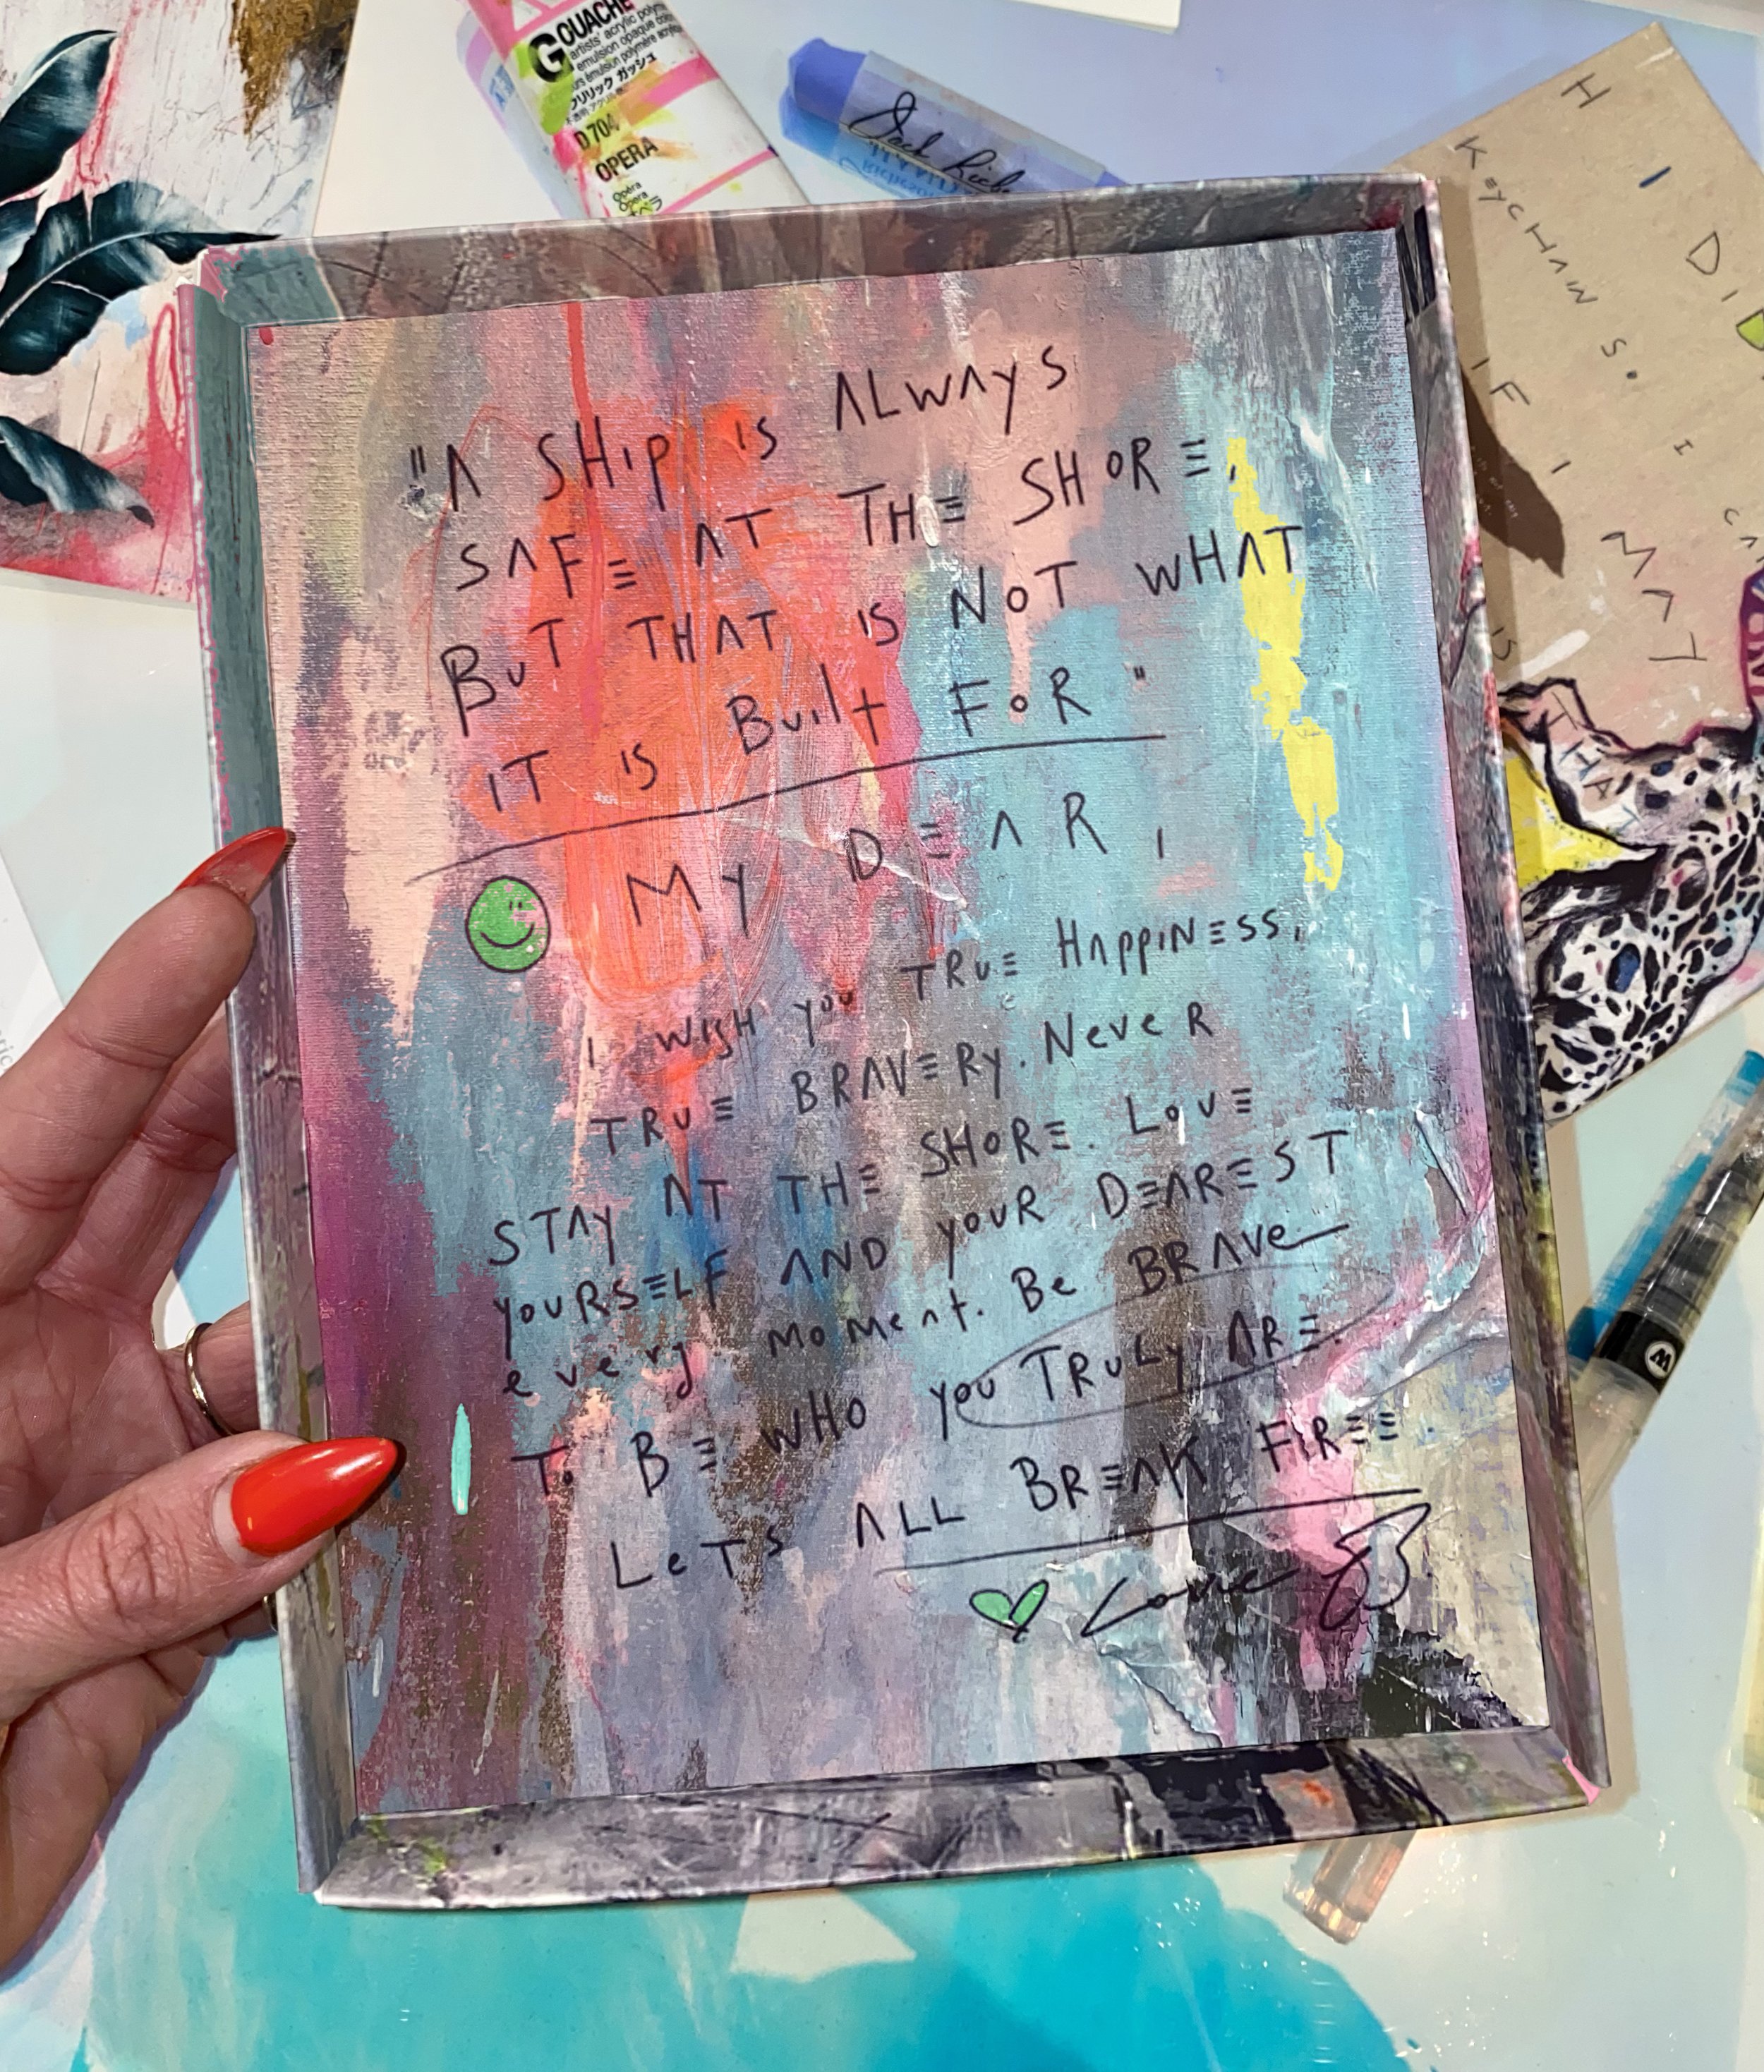 GOUACHE
artists' acrylic polymer
emulsion opaque
D704
OPERA
Opéra
Opera
"A SHIP IS ALWAYS
SAFE AT THE SHORE,
BUT THAT IS NOT WHAT
IT IS Built FOR"
MY DEAR,
I WISH you TRUE HAPPINESS,
TRUE BRAVERY. NeveR
STAY AT THE SHORE. LOVE
yoURSELF AND yoUR DEAREST
every moment. Be BRAVe
To BE WHO you TRULY ARE.
LeTS ALL BREAK FREE.
Love
H I
DID
KEYCHAINS.
IF I
MAT
IS
THAT
W